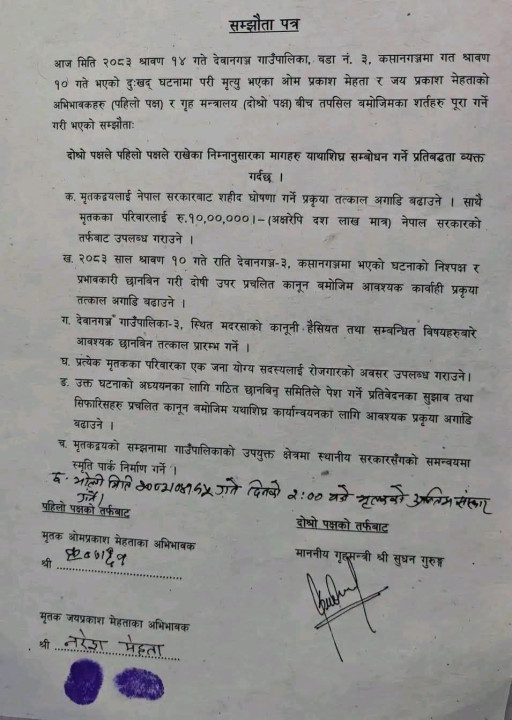 सम्झौता पत्र
आज मिति २०८३ श्रावण १४ गते देवानगञ्ज गाउँपालिका, वडा नं. ३, कप्तानगञ्जमा गत श्रावण
१० गते भएको दुःखद् घटनामा परी मृत्यु भएका ओम प्रकाश मेहता र जय प्रकाश मेहताको
अभिभावकहरु (पहिलो पक्ष) र गृह मन्त्रालय (दोश्रो पक्ष) बीच तपसिल बमोजिमका शर्तहरु पूरा गर्ने
गरी भएको सम्झौताः
दोश्रो पक्षले पहिलो पक्षले राखेका निम्नानुसारका मागहरु यथाशिघ्र सम्बोधन गर्ने प्रतिबद्धता व्यक्त
गर्दछ ।
क. मृतकद्वयलाई नेपाल सरकारबाट शहीद घोषणा गर्ने प्रकृया तत्काल अगाडि बढाउने । साथै
मृतकका परिवारलाई रु.१०,००,०००।– (अक्षरेपि दश लाख मात्र) नेपाल सरकारको
तर्फबाट उपलब्ध गराउने ।
ख. २०८३ साल श्रावण १० गते राति देवानगञ्ज-३, कप्तानगञ्जमा भएको घटनाको निश्पक्ष र
प्रभावकारी छानबिन गरी दोषी उपर प्रचलित कानून बमोजिम आवश्यक कार्वाही प्रकृया
तत्काल अगाडि बढाउने ।
ग. देवानगञ्ज गाउँपालिका-३, स्थित मदरसाको कानूनी हैसियत तथा सम्बन्धित विषयहरुबारे
आवश्यक छानबिन तत्काल प्रारम्भ गर्ने ।
घ. प्रत्येक मृतकका परिवारका एक जना योग्य सदस्यलाई रोजगारको अवसर उपलब्ध गराउने।
ङ. उक्त घटनाको अध्ययनका लागि गठित छानबिन समितिले पेश गर्ने प्रतिवेदनका सुझाव तथा
सिफारिसहरु प्रचलित कानून बमोजिम यथाशिघ्र कार्यान्वयनका लागि आवश्यक प्रकृया अगाडि
बढाउने ।
च. मृतकद्वयको सम्झनामा गाउँपालिकाको उपयुक्त क्षेत्रमा स्थानीय सरकारसँगको समन्वयमा
स्मृति पार्क निर्माण गर्ने ।
भोली मिति गते दिनको २:०० बजे मृतकको अन्तिम संस्कार
गर्ने।
पहिलो पक्षको तर्फबाट
दोश्रो पक्षको तर्फबाट
मृतक ओमप्रकाश मेहताका अभिभावक
माननीय गृहमन्त्री श्री सुधन गुरुङ्ग
श्री
मृतक जयप्रकाश मेहताका अभिभावक
श्री नरेश मेहता